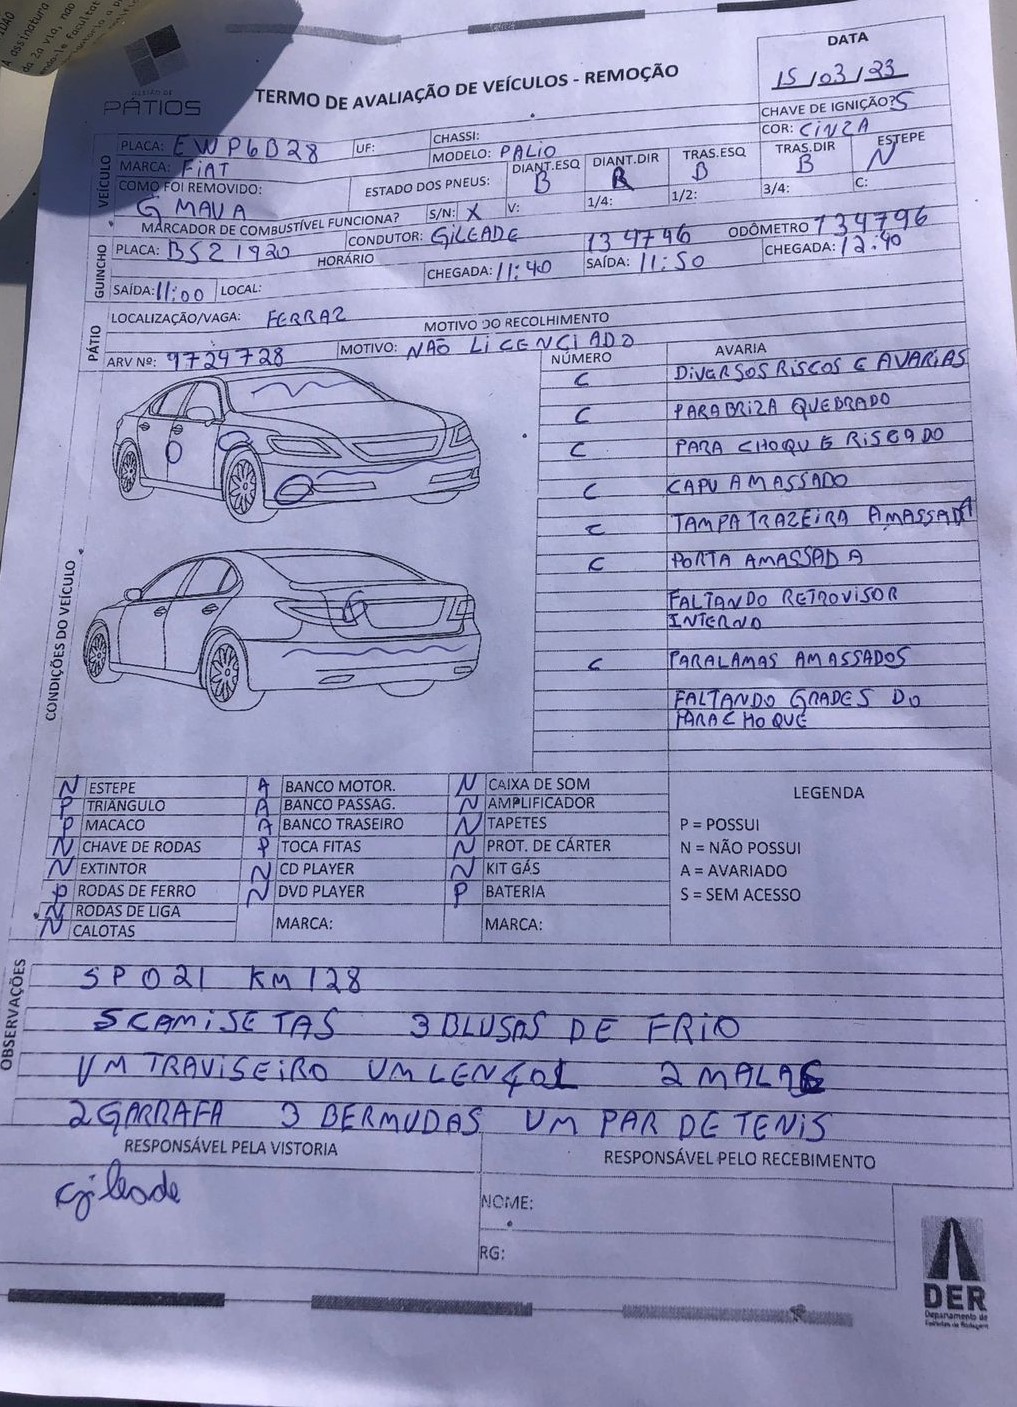 GESTÃO DE
PÁTIOS
TERMO DE AVALIAÇÃO DE VEÍCULOS - REMOÇÃO
DATA
15/03/23
CHAVE DE IGNIÇÃO? S
VEÍCULO
PLACA: EWP6B28 UF: CHASSI: COR: CINZA
MARCA: FIAT MODELO: PALIO
COMO FOI REMOVIDO: ESTADO DOS PNEUS: DIANT.ESQ DIANT.DIR TRAS.ESQ TRAS.DIR ESTEPE
G MAUA B B B B N
MARCADOR DE COMBUSTÍVEL FUNCIONA? S/N: X V: 1/4: 1/2: 3/4: C:
GUINCHO
PLACA: BSZ1920 CONDUTOR: GILEADE 134746 ODÔMETRO 134796
HORÁRIO
SAÍDA: 11:00 LOCAL: CHEGADA: 11:40 SAÍDA: 11:50 CHEGADA: 12:40
PÁTIO
LOCALIZAÇÃO/VAGA: FERRAZ
MOTIVO DO RECOLHIMENTO
ARV Nº: 9724728 MOTIVO: NÃO LICENCIADO
CONDIÇÕES DO VEÍCULO
NÚMERO AVARIA
C DIVERSOS RISCOS E AVARIAS
C PARABRIZA QUEBRADO
C PARA CHOQUE RISCADO
C CAPU AMASSADO
C TAMPA TRAZEIRA AMASSADA
C PORTA AMASSADA
FALTANDO RETROVISOR
INTERNO
C PARALAMAS AMASSADOS
FALTANDO GRADES DO
PARACHOQUE
N ESTEPE A BANCO MOTOR. N CAIXA DE SOM LEGENDA
P TRIÂNGULO A BANCO PASSAG. N AMPLIFICADOR
P MACACO A BANCO TRASEIRO N TAPETES P = POSSUI
N CHAVE DE RODAS P TOCA FITAS N PROT. DE CÁRTER N = NÃO POSSUI
N EXTINTOR N CD PLAYER N KIT GÁS A = AVARIADO
P RODAS DE FERRO N DVD PLAYER P BATERIA S = SEM ACESSO
N RODAS DE LIGA
N CALOTAS MARCA: MARCA:
OBSERVAÇÕES
SP021 KM 128
5 CAMISETAS 3 BLUSAS DE FRIO
UM TRAVISEIRO UM LENÇOL 2 MALAS
2 GARRAFA 3 BERMUDAS UM PAR DE TENIS
RESPONSÁVEL PELA VISTORIA RESPONSÁVEL PELO RECEBIMENTO
gileade
NOME:
RG:
DER
Departamento de
Estradas de Rodagem